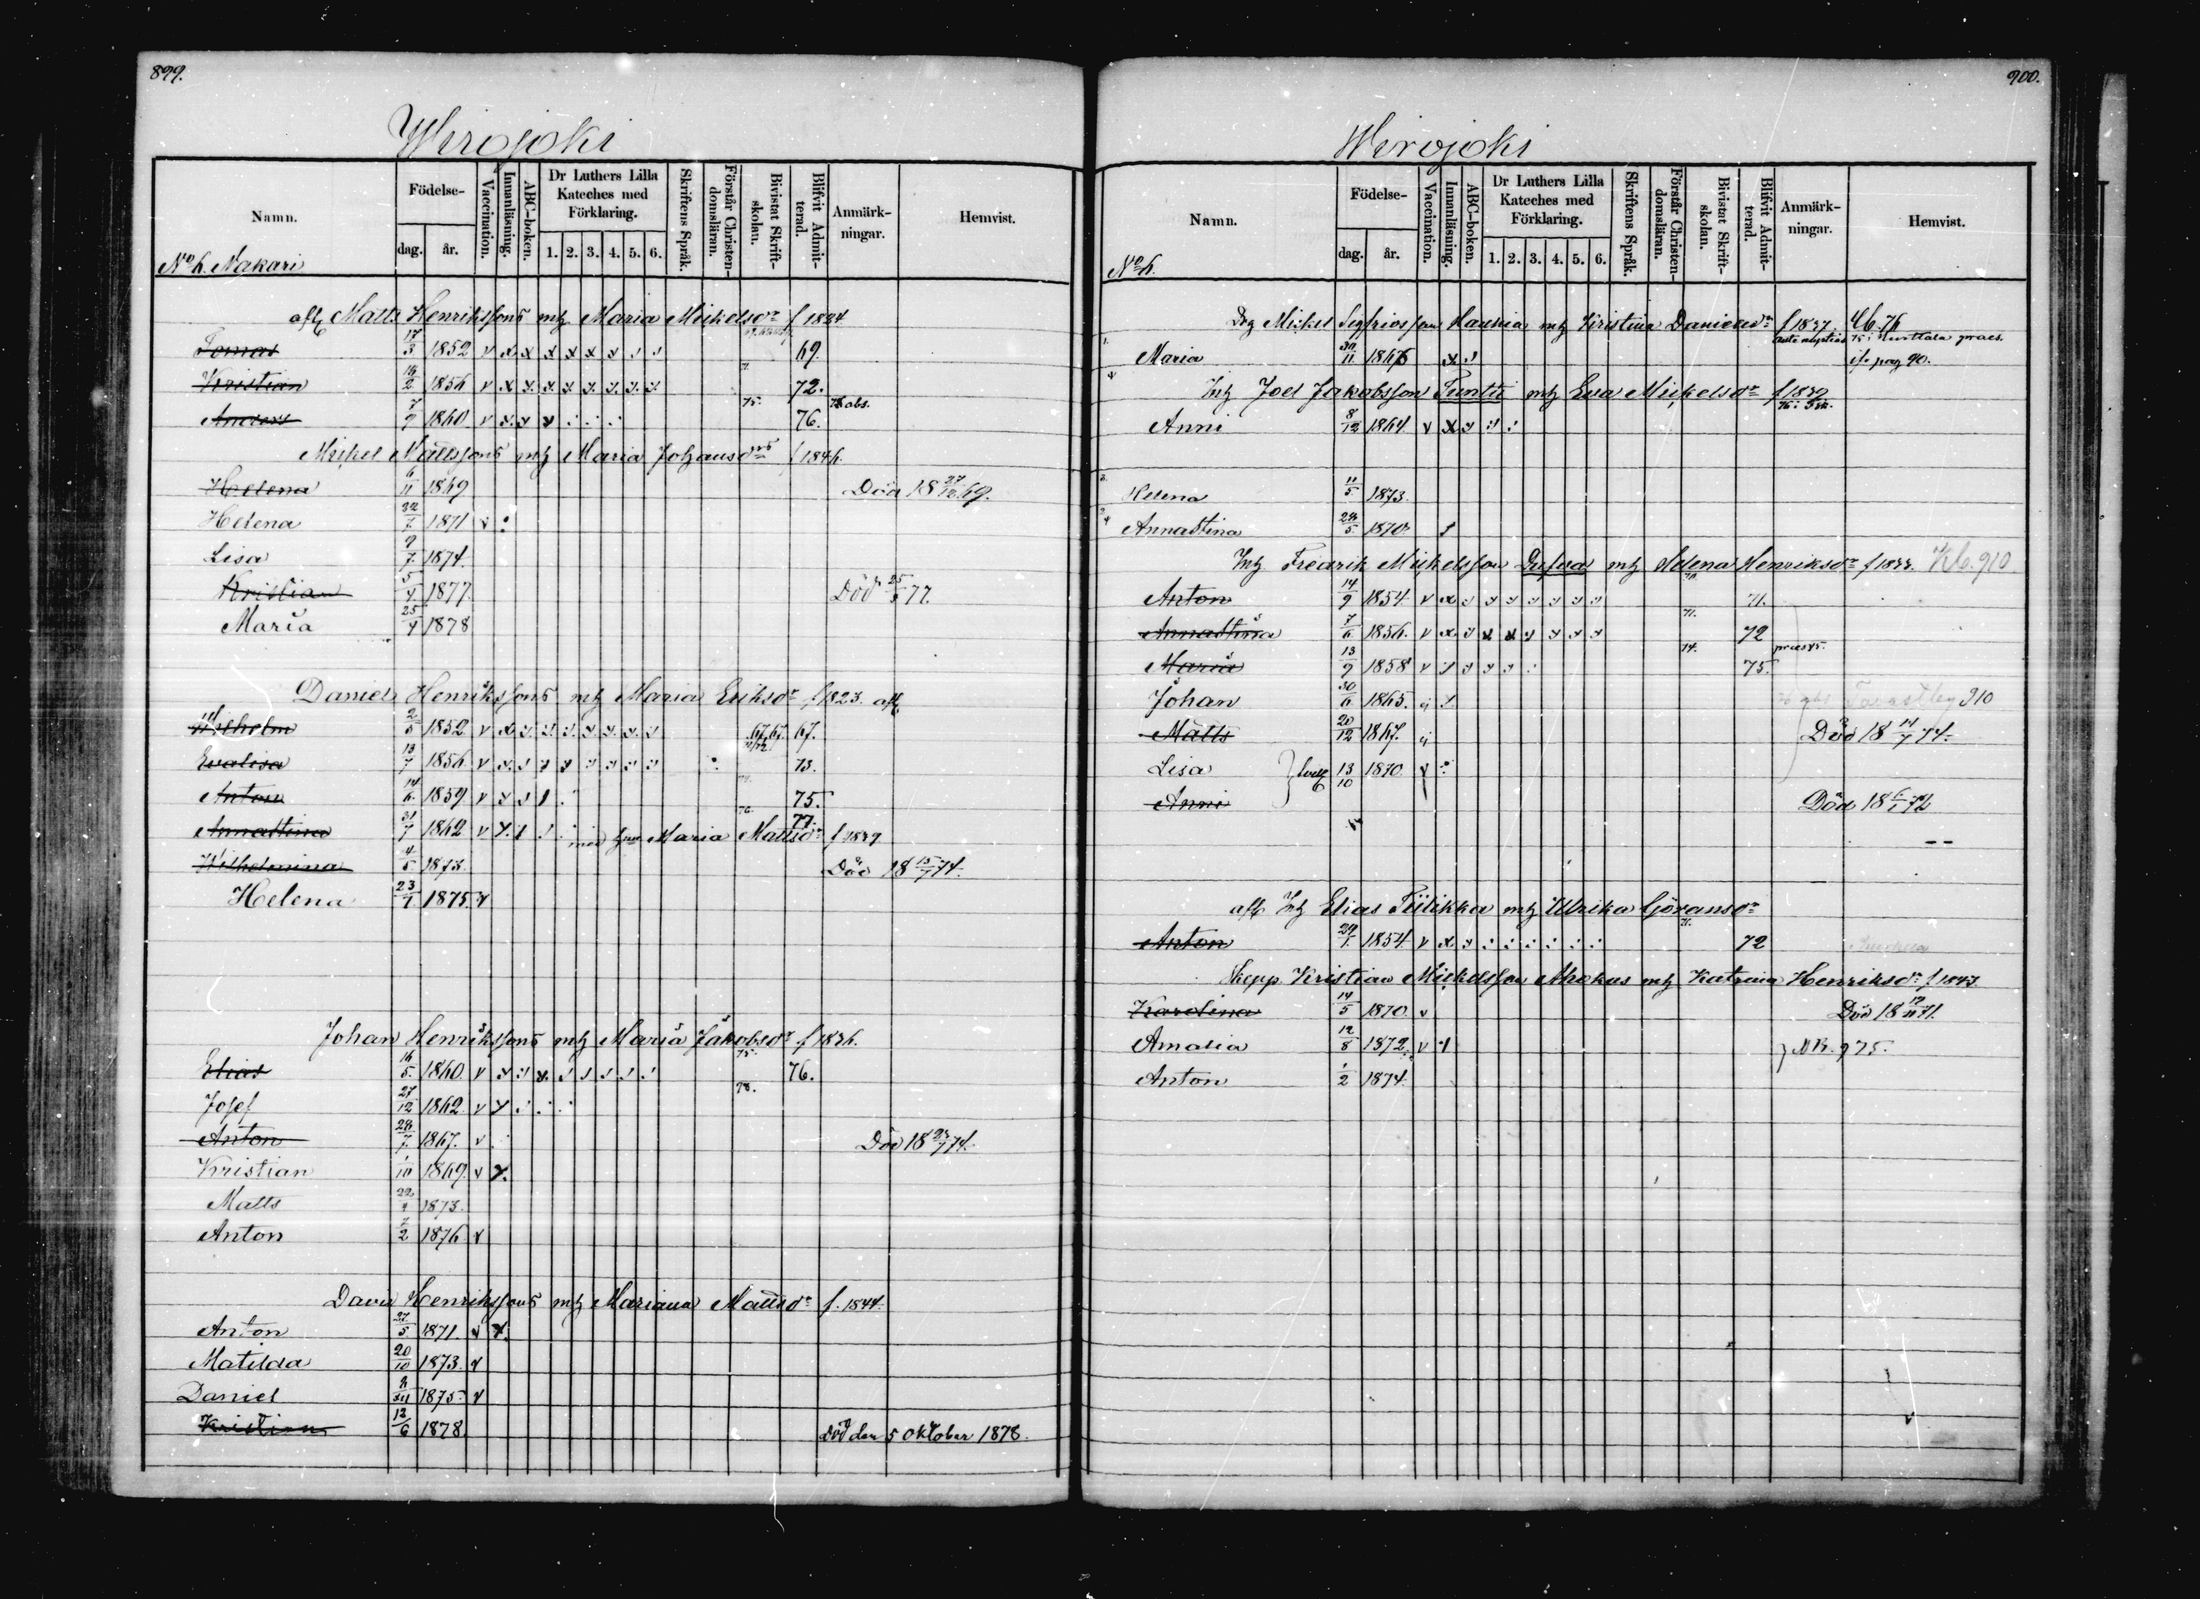 899.
Wirojoki
Namn.
Födelse-
dag.
år.
Vaccination.
Innanläsning.
ABC-boken.
Dr Luthers Lilla Kateches med Förklaring.
1. 2. 3. 4. 5. 6.
Skriftens Språk.
Förstår Christendomsläran.
Bivistat Skriftskolan.
Blifvit Admitterad.
Anmärkningar.
Hemvist.
Nº 4. Nakari
afl. Matts Henrikssons mh Maria Mickelsdr f 1824
Tomas 17/3 1852 v x x x x x 69.
Kristian 1856 v x 72.
Anders 7/9 1860 v x 75. 78 abs. 76.
Mickel Mattssons mh Maria Johansdrs f 1846.
Helena 6/11 1869 Död 18 27/12 69.
Helena 22/7 1871 v
Lisa 9/7 1874.
Kristian 5/4 1877 Död 25/5 77.
Maria 25/4 1878
Daniels Henrikssons mh Maria Eriksdr f 1823. afl.
Wilhelm 2/5 1852 v x 67. 67. 67.
Evalisa 13/7 1856 v 73.
Anton 14/6 1859 v 75.
Annastina 31/7 1862 v 76. 77.
med hu Maria Mattsdr f 1839
Wilhelmina 4/5 1873. Död 18 15/7 74.
Helena 23/1 1875. v
Johan Henrikssons mh Maria Jakobsdr f 1836.
Elias 16/5 1860 v 75. 76.
Josef 27/12 1862 v 78.
Anton 28/7 1867. v Död 18 23/7 74.
Kristian 1/10 1869. v
Matts 22/9 1873.
Anton 7/2 1876 v
David Henrikssons mh Mariana Mattsdr f. 1844.
Anton 27/5 1871 v
Matilda 20/10 1873. v
Daniel 1875 v
Kristian 12/6 1878 Död den 5 Oktober 1878.
900.
Wirojoki
Namn.
Födelse-
dag.
år.
Vaccination.
Innanläsning.
ABC-boken.
Dr Luthers Lilla Kateches med Förklaring.
1. 2. 3. 4. 5. 6.
Skriftens Språk.
Förstår Christendomsläran.
Bivistat Skriftskolan.
Blifvit Admitterad.
Anmärkningar.
Hemvist.
Nº 4.
Drg Mickel Sigfridsson Haukia mh Kristina Danielsdr f 1837. 46.76
1. Maria 30/11 1866 x if. pag 90.
Inh Joel Jakobsson Tuntti mh Eva Mickelsdr f 1839
Anni 8/12 1864 v x
3. Helena 11/5 1873.
Annastina 28/5 1870.
Inh Fredrik Mickelsson Dufva mh Helena Henriksdr f 1833. Kb. 910
Anton 14/9 1854 v x 70. 71.
Annastina 7/6 1856. v x 71. 72
Maria 13/9 1858 v 74. 75. praes 75.
Johan 30/6 1865. Tavastby 910
Matts 20/12 1867. Död 18 14/7 74.
Lisa 13/10 1870 v
Anni Död 18 6/1 72
afl. Inh Elias Tiilikka mh Ulrika Göransdr
Anton 29/1 1854. v x 71. 72
Skepp. Kristian Mickelsson Ahokas mh Katrina Henriksdr f 1843.
Karolina 14/5 1870. v Död 18 12/11 71.
Amalia 12/8 1872. v } NB. 975.
Anton 1/2 1874.